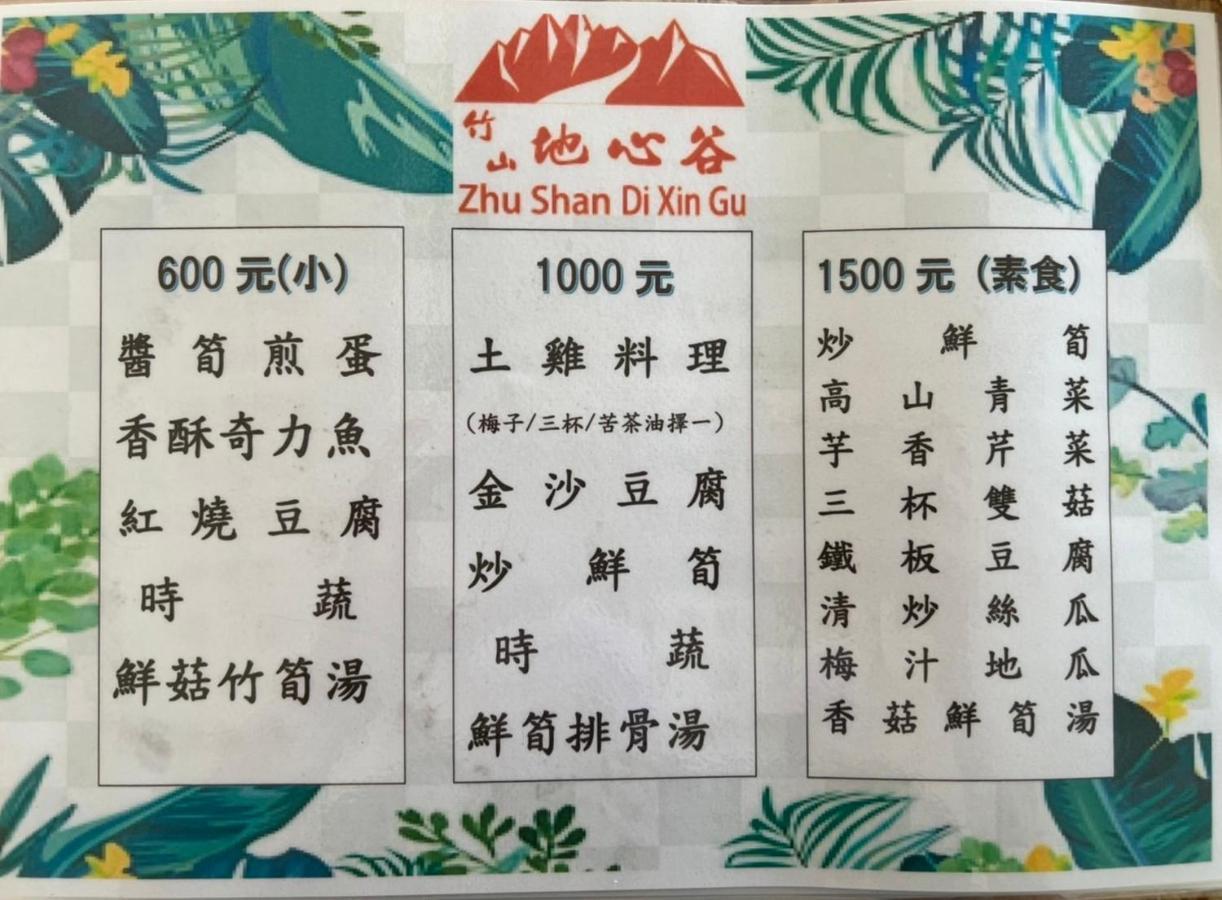 竹山 地心谷
Zhu Shan Di Xin Gu
600 元(小)
醬筍煎蛋
香酥奇力魚
紅燒豆腐
時蔬
鮮菇竹筍湯
1000 元
土雞料理
(梅子/三杯/苦茶油擇一)
金沙豆腐
炒鮮筍
時蔬
鮮筍排骨湯
1500 元 (素食)
炒鮮筍
高山青菜
芋香芹菜
三杯雙菇
鐵板豆腐
清炒絲瓜
梅汁地瓜
香菇鮮筍湯